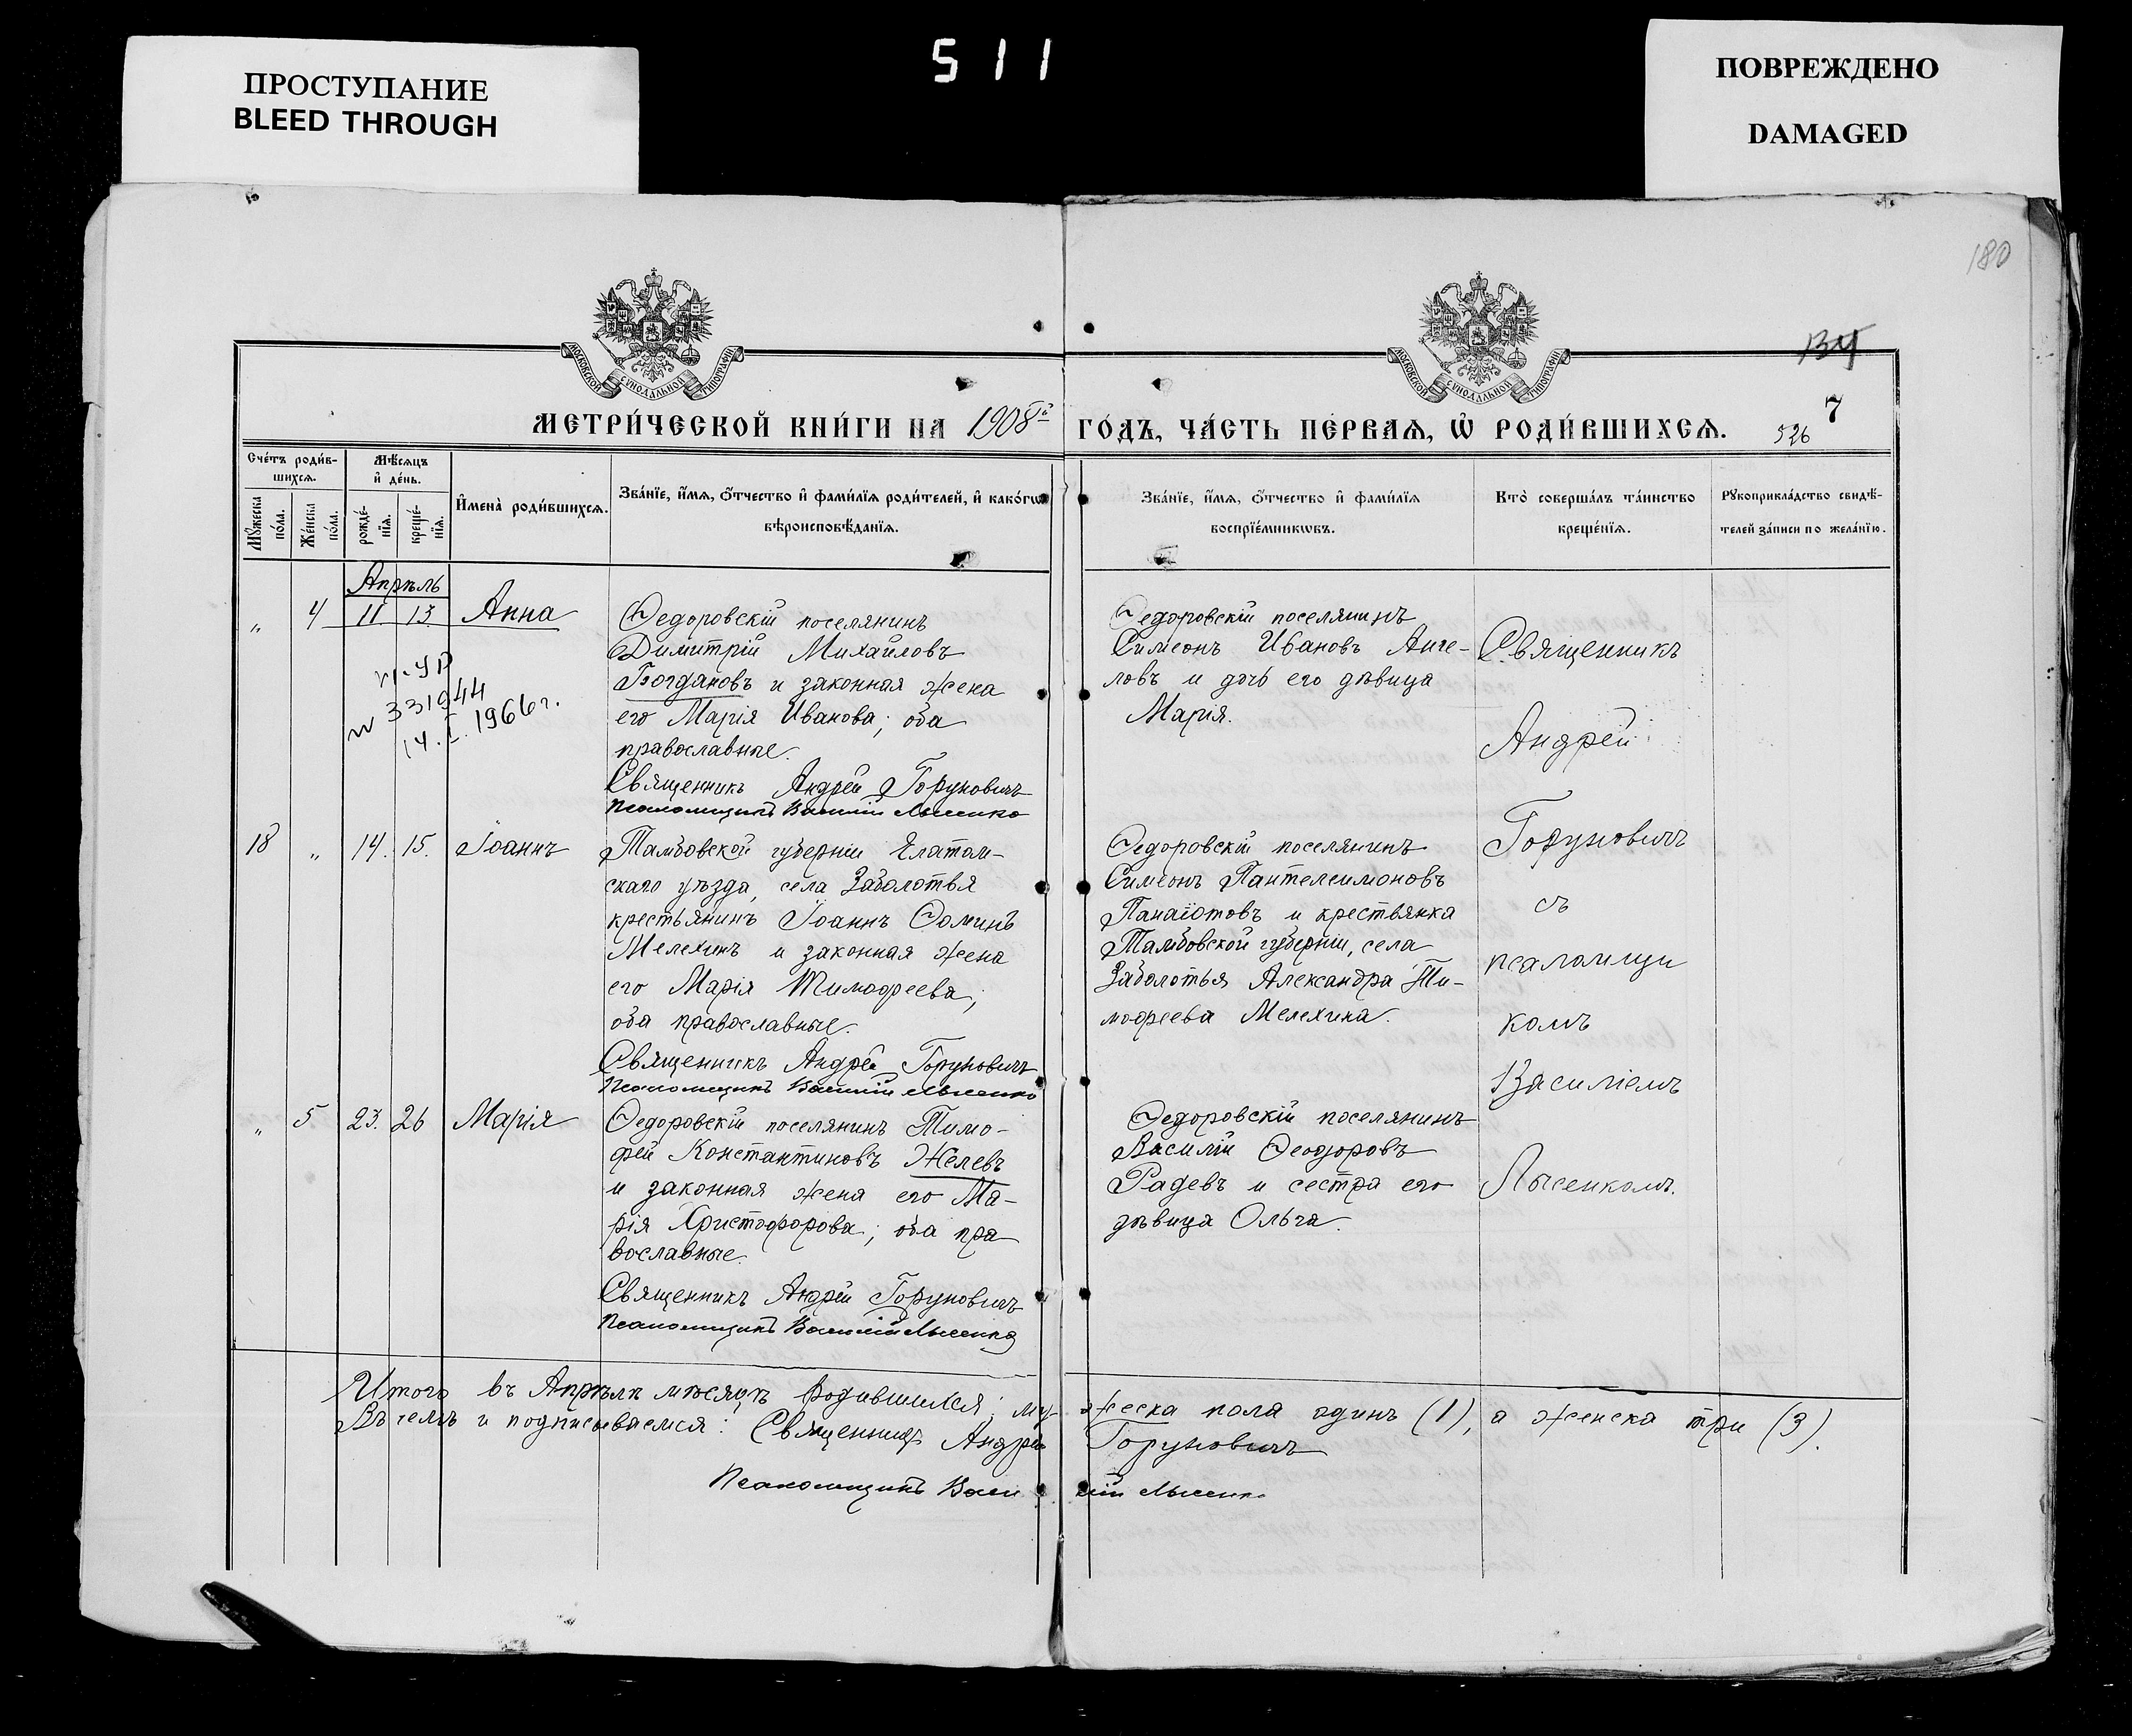 ПРОСТУПАНИЕ
BLEED THROUGH
511
ПОВРЕЖДЕНО
DAMAGED
180
МОСКОВСКОЙ СѴНОДАЛЬНОЙ ТИПОГРАФІИ
МОСКОВСКОЙ СѴНОДАЛЬНОЙ ТИПОГРАФІИ
МЕТРИ́ЧЕСКОЙ КНИ́ГИ НА 1908й ГО́ДЪ, ЧА́СТЬ ПЕ́РВАѦ, Ѡ҆ РОДИ́ВШИХСѦ.
7
526
Сче́тъ роди́в-
шихсѧ.
Мꙋ́жеска по́ла.
Же́нска по́ла.
Мѣ́сѧцъ
и҆ де́нь.
рожде́-
нїѧ.
креще́-
нїѧ.
И҆мена̀ роди́вшихсѧ.
Зва́нїе, и҆́мѧ, ѻ҆́тчество и҆ фами́лїѧ роди́телей, и҆ како́гѡ
вѣроисповѣ́данїѧ.
Зва́нїе, и҆́мѧ, ѻ҆́тчество и҆ фами́лїѧ
воспрїе́мникѡвъ.
Кто̀ соверша́лъ та́инство
креще́нїѧ.
Рꙋкоприкла́дство свидѣ́-
телей за́писи по жела́нїю.
Апрѣль
„ 4 11 13. Анна
331944
14.I.1966г.
Ѳедоровскій поселянинъ
Димитрій Михайловъ
Богдановъ и законная жена
его Марія Иванова; оба
православные.
Священникъ Андрей Горуновичъ
Псаломщикъ Василій Лысенко
Ѳедоровскій поселянинъ
Симеонъ Ивановъ Анге-
ловъ и дочь его дѣвица
Марія.
18 „ 14. 15. Іоаннъ
Тамбовской губерніи Елатом-
скаго уѣзда, села Заболотья
крестьянинъ Іоаннъ Ѳоминъ
Мелехинъ и законная жена
его Марія Тимофеева;
оба православные.
Священникъ Андрей Горуновичъ
Псаломщикъ Василій Лысенко
Ѳедоровскій поселянинъ
Симеонъ Пантелеимоновъ
Панаіотовъ и крестьянка
Тамбовской губерніи, села
Заболотья Александра Ти-
мофеева Мелехина.
„ 5 23. 26 Марія
Ѳедоровскій поселянинъ Тимо-
фей Константиновъ Желевъ
и законная жена его Ма-
рія Христофорова; оба пра
вославные.
Священникъ Андрей Горуновичъ
Псаломщикъ Василій Лысенко
Ѳедоровскій поселянинъ
Василій Ѳеодоровъ
Радевъ и сестра его
дѣвица Ольга.
Священникъ
Андрей
Горуновичъ
съ
псаломщи
комъ
Василіемъ
Лысенкомъ.
Итого въ Апрѣлѣ мѣсяцѣ родившихся: му жеска пола одинъ (1), а женска три (3).
Въ чемъ и подписываемся: Священникъ Андрей Горуновичъ
Псаломщикъ Василій Лысенко